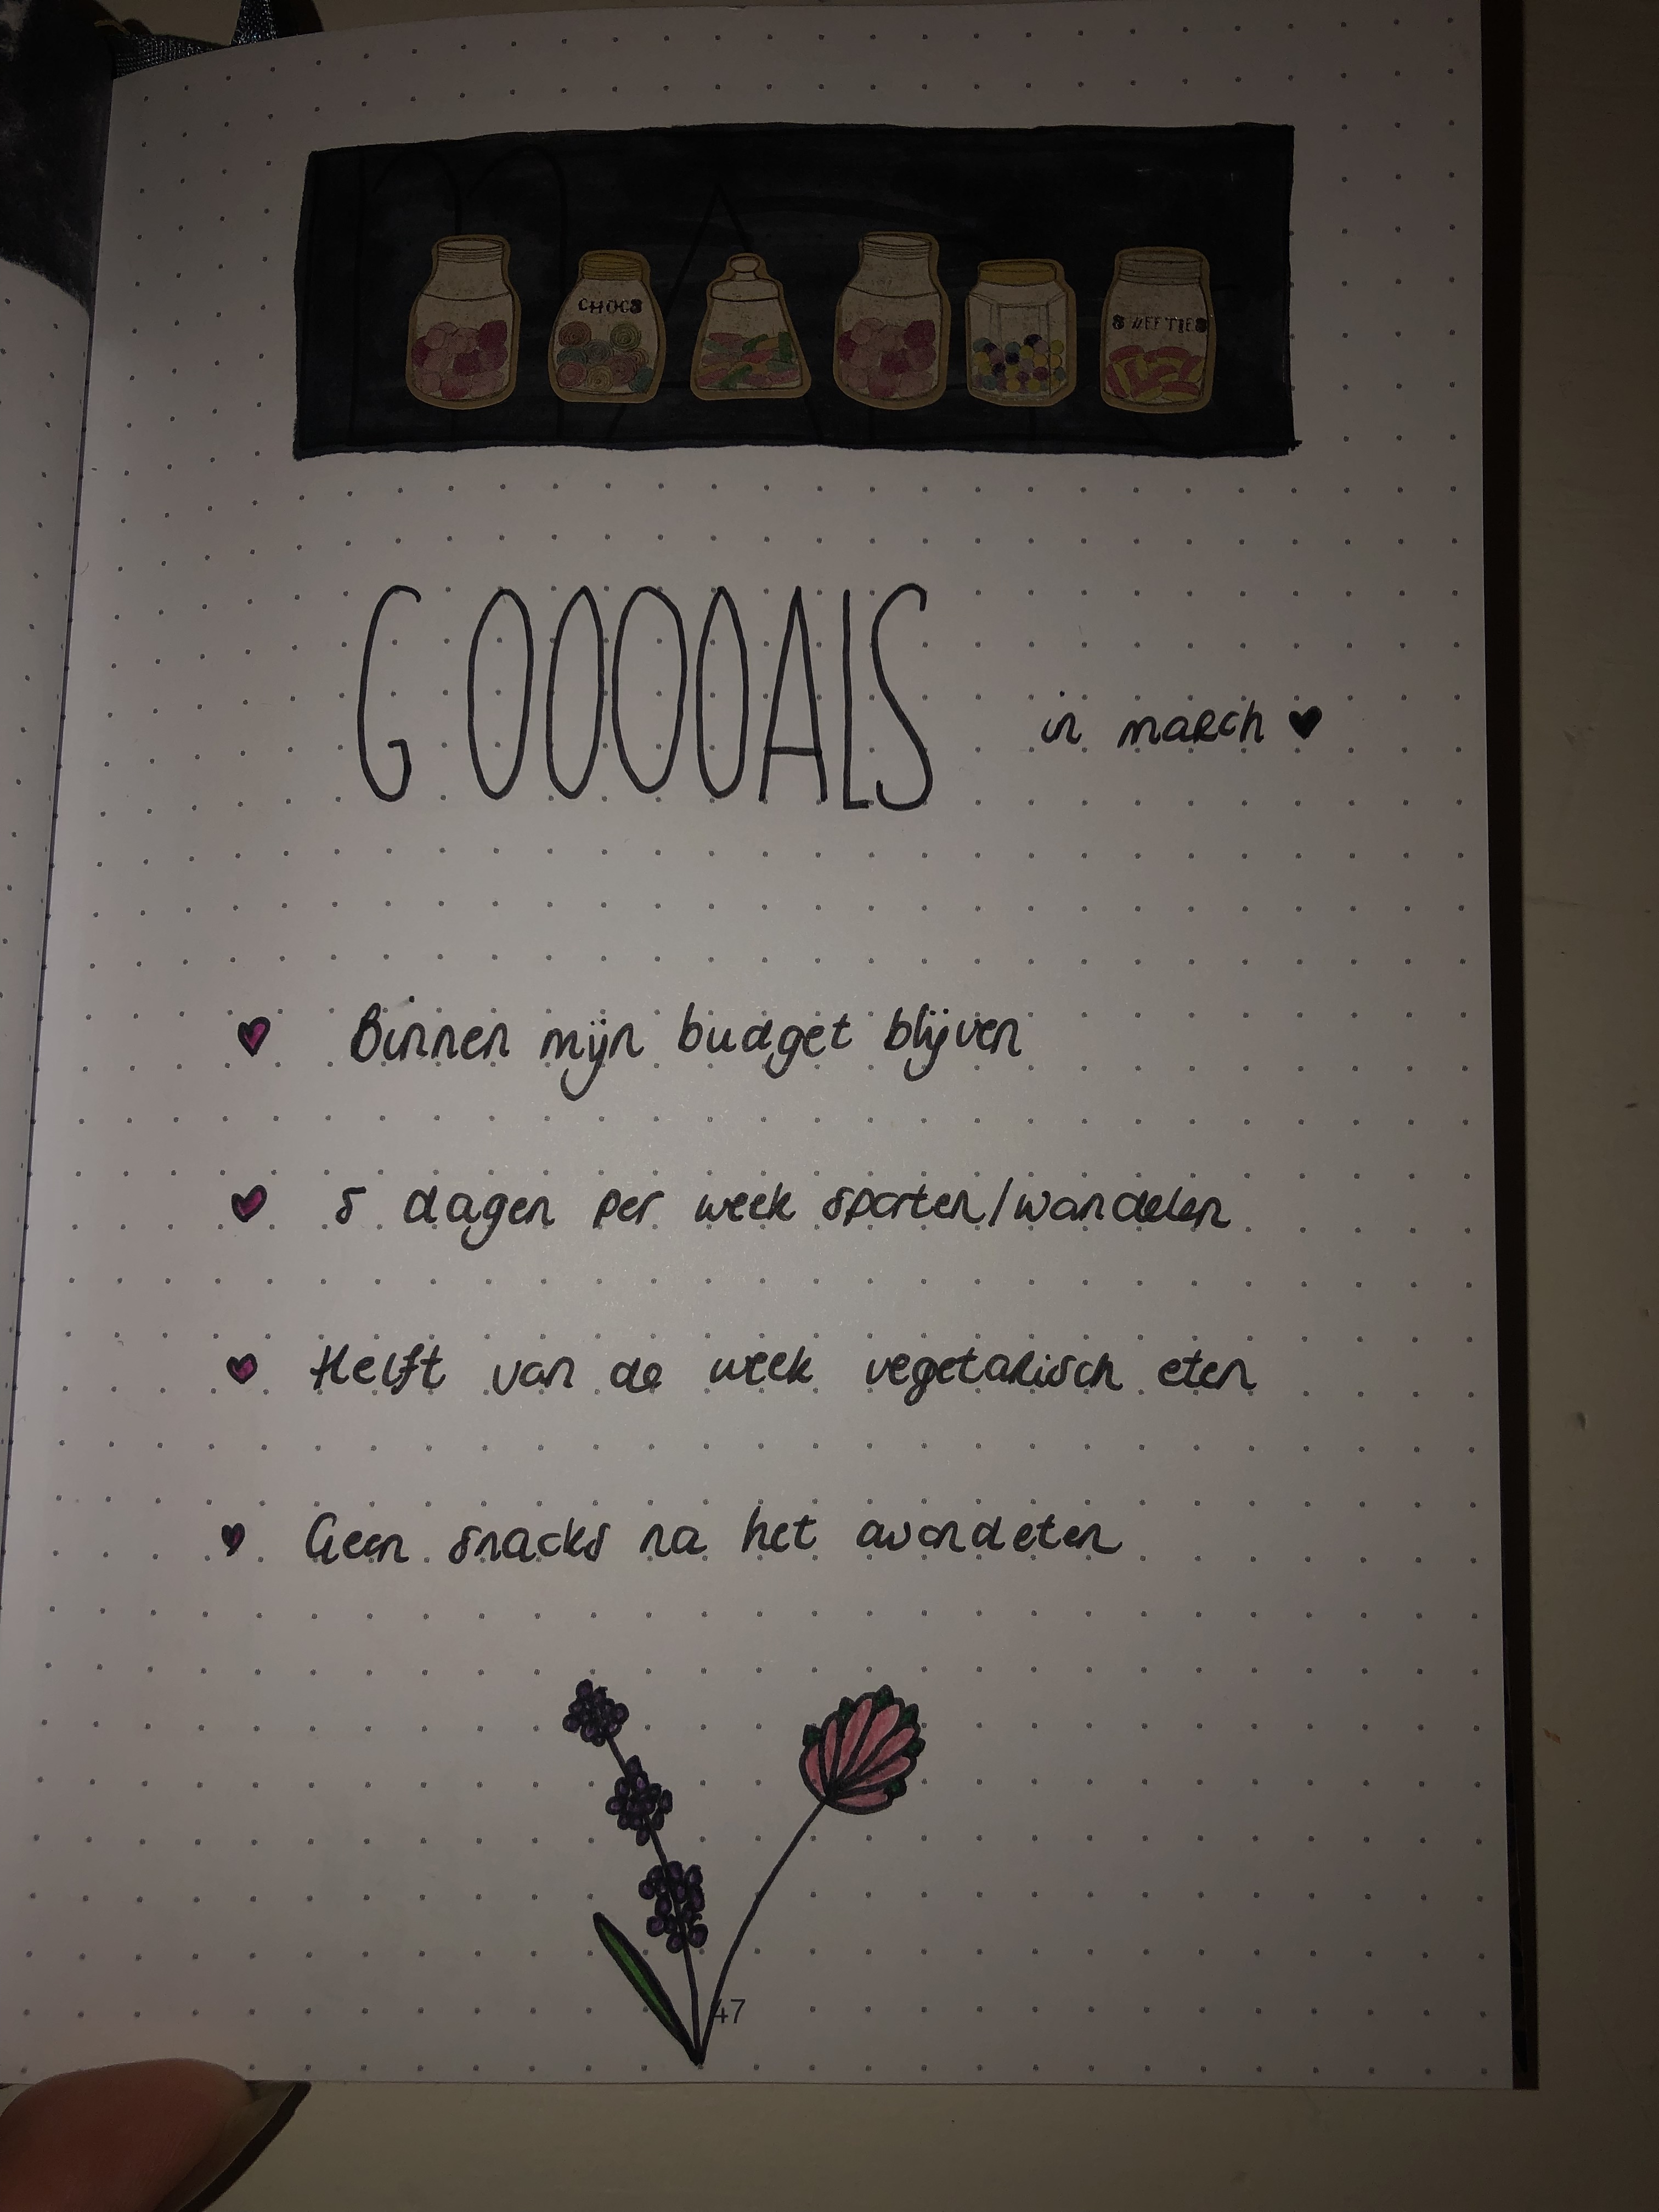 CHOCS
SWEETIES
GOOOOALS in march
Binnen mijn budget blijven
5 dagen per week sporten/wandelen
Helft van de week vegetarisch eten
Geen snacks na het avondeten
47